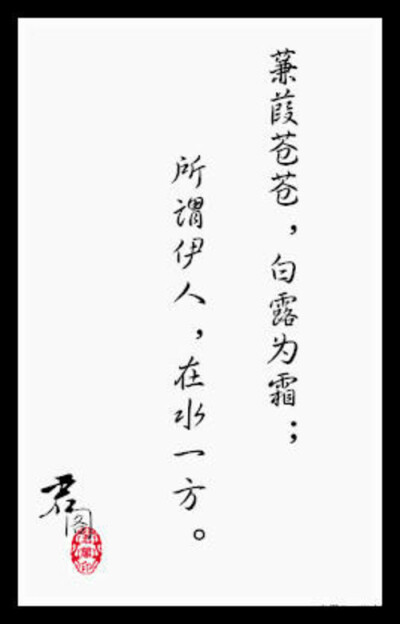 蒹葭苍苍，白露为霜；
所谓伊人，在水一方。
君阁